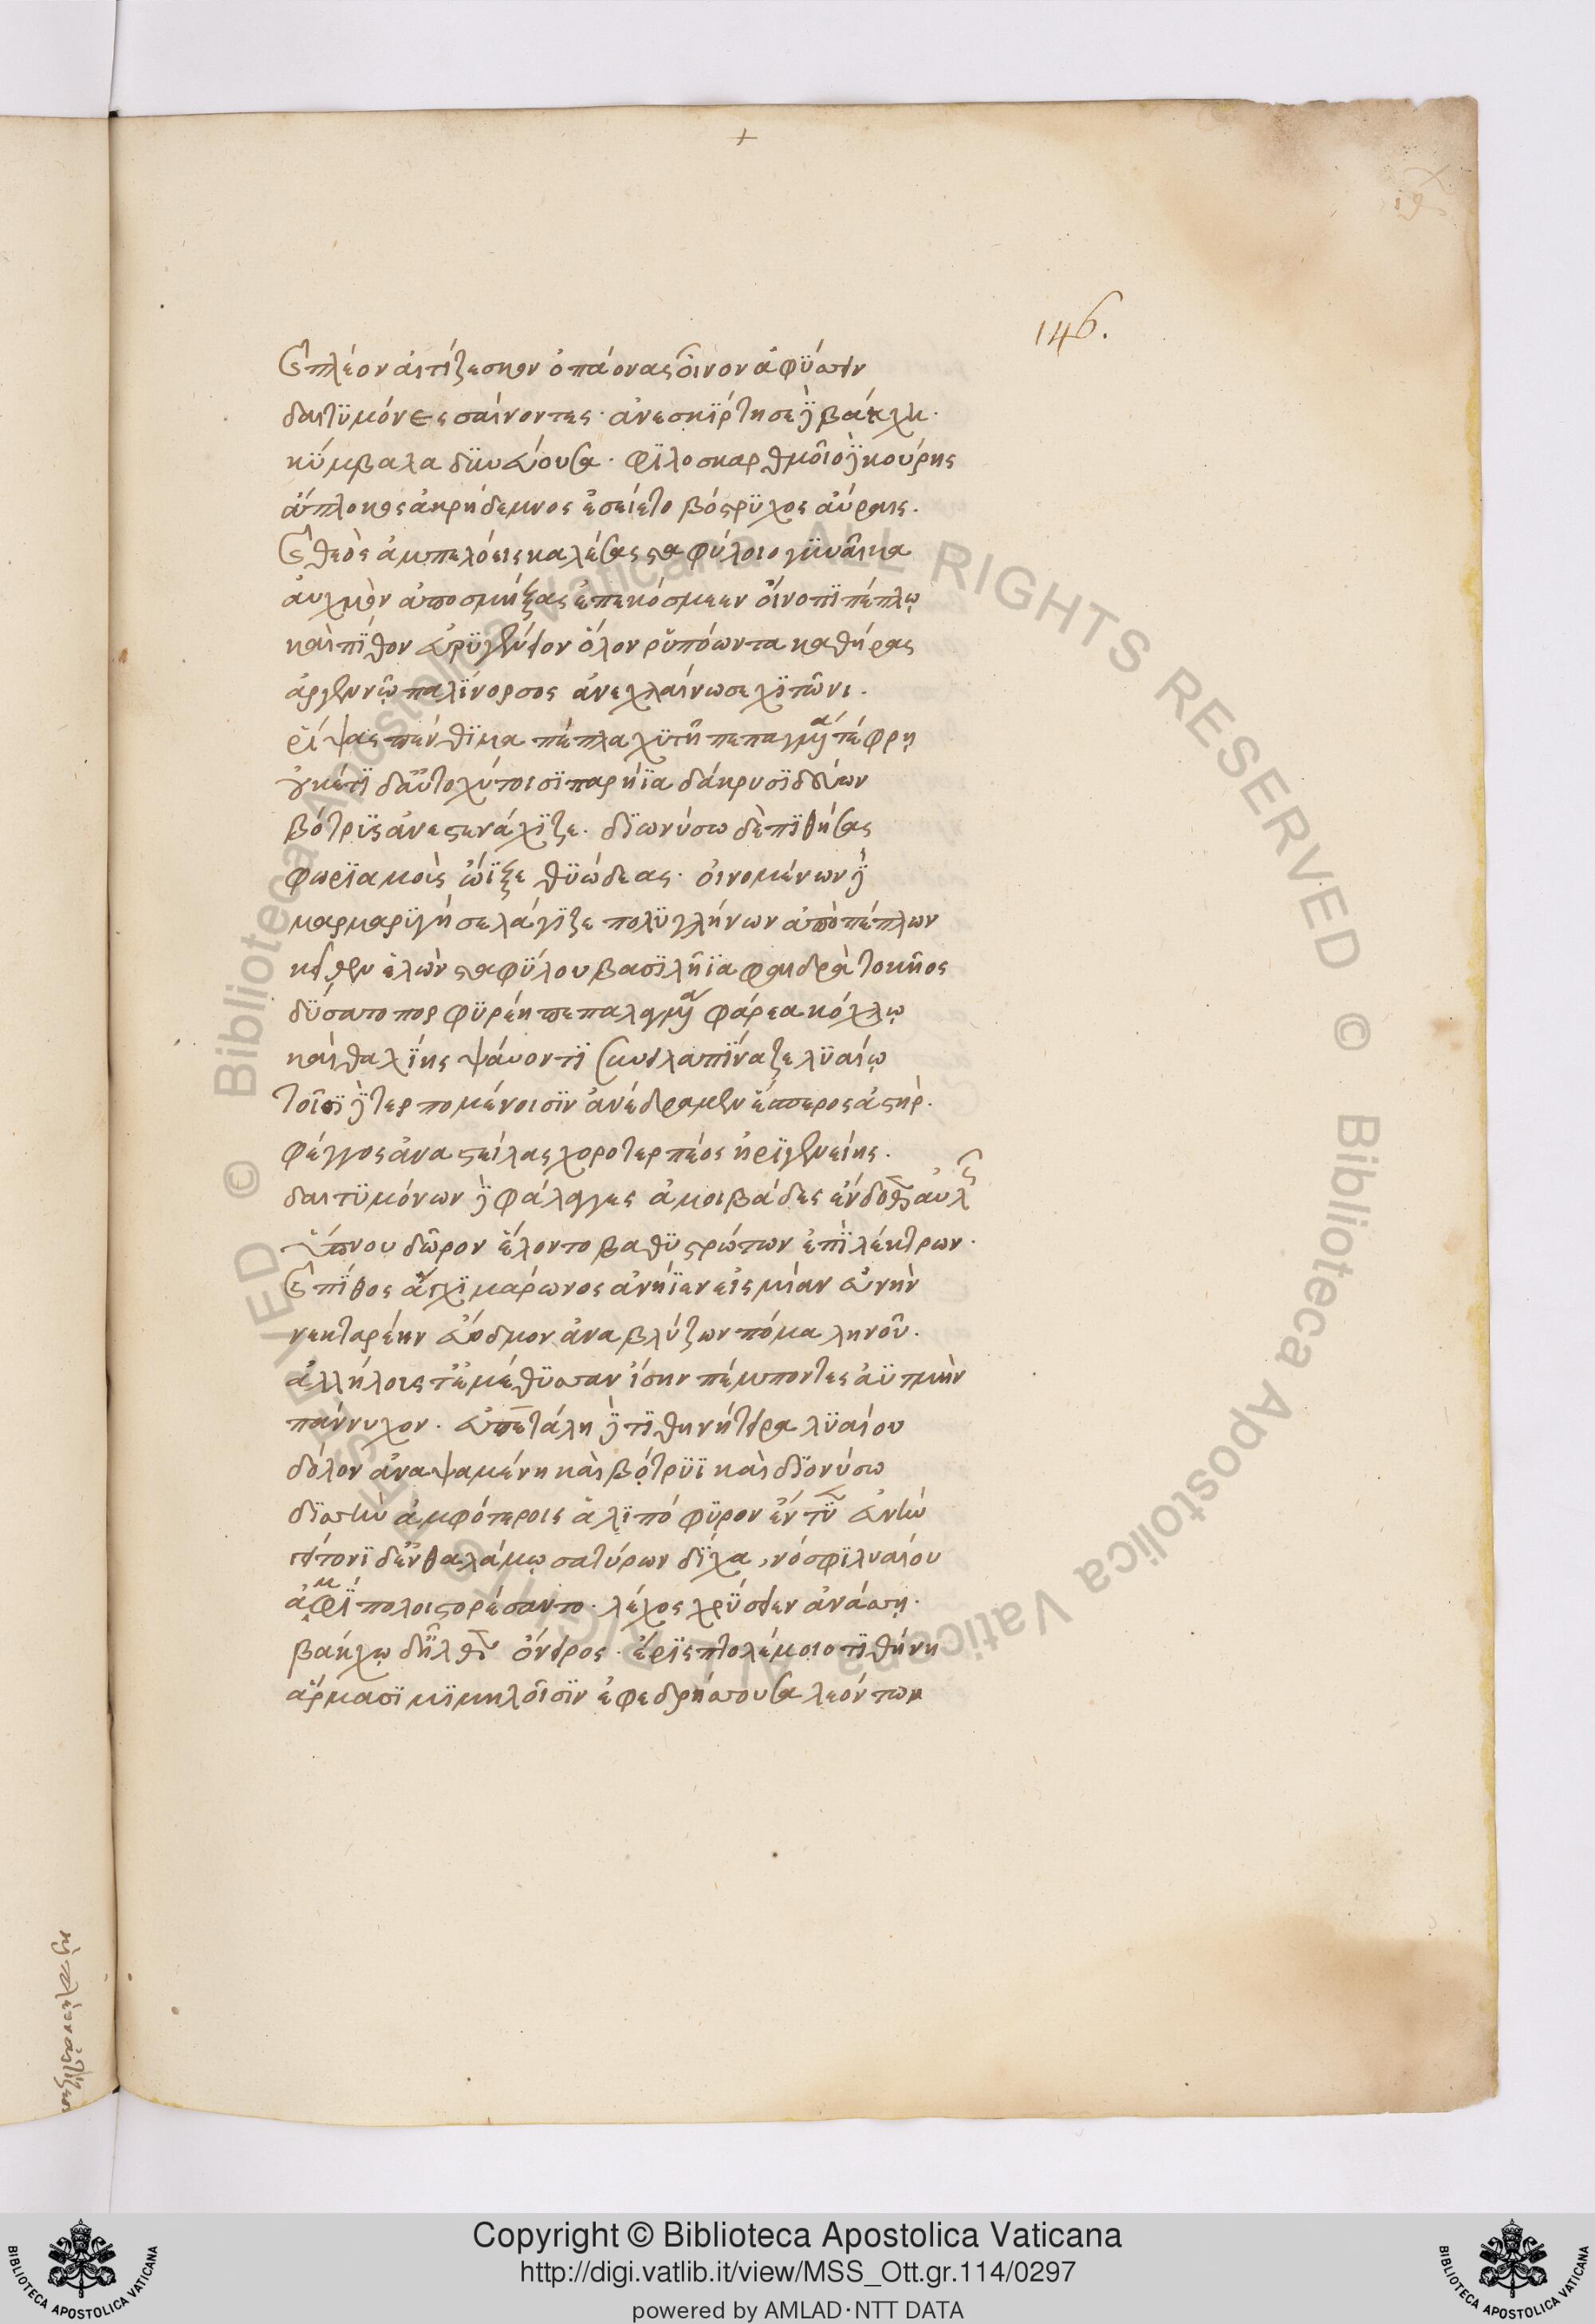 146.
καὶ πλέον αἰτίζεσκον ὀπάονας οἶνον ἀφύσσειν
δαιτϋμόνες σαίνοντες· ἀνεσκίρτησε δὲ βάκχη·
κύμβαλα δινεύουσα· φιλοσκάρθμοιο δὲ κούρης
ἄπλοκος ἀκρήδεμνος ἐσείετο βόστρϋχος αὔραις.
καὶ θεὸς ἀμπελόεις καλέσας σταφύλοιο γϋναῖκα
αὐχμὸν ἀποσμήξας ἐπεκόσμεεν οἴνοπϊ πέπλῳ
καὶ πίθον εὐρϋγένειον ὅλον ρϋπόωντα καθήρας
ἀργεννῷ παλίνορσος ἀνεχλαίνωσε χϊτῶνι.
ῥίψας πένθϊμα πέπλα χϋτῇ πεπαλαγμένα τέφρῃ
οὐκέτϊ δ' αὐτοχύτοισϊ παρήϊα δάκρυσϊ δεύων
βότρϋς ἀνεστενάχϊζε. δϊωνύσω δὲ πϊθήσας
φωρϊαμοὺς ὤϊξε θϋώδεας· οἰγομένων δὲ
μαρμαρϋγὴ σελάγϊζε πολϋγλήνων ἀπὸ πέπλων
κεῖθεν ἑλὼν σταφύλου βασϊλήϊα φαιδρὰ τοκῆος
δύσατο πορφϋρέῃ πεπαλαγμένα φάρεα κόχλῳ
καὶ θαλίης ψάυοντϊ συνειλαπίναζε λϋαίῳ
τοῖσϊ δὲ τερπομένοισϊν ἀνέδραμεν ἕσπερος ἀστὴρ.
φέγγος ἀναστείλας χοροτερπέος ἠρϊγενείης.
δαιτϋμόνων δὲ φάλαγγες ἀμοιβάδες ἔνδοθεν αὐλῆς
ὕπνου δῶρον ἕλοντο βαθϋστρώτων ἐπὶ λέκτρων·
καὶ πίθος ἄγχι μάρωνος ἀνήϊεν εἰς μίαν εὐνὴν
νεκταρέην εὔοδμον ἀναβλύζων πόμα ληνοῦ.
ἀλλήλοις τ' ἐμέθϋσσαν ἴσην πέμποντες ἀϋτμὴν
πάννυχον. εὐπετάλη δὲ τϊθηνήτειρα λϋαίου
δόλον ἀναψαμένη καὶ βότρϋϊ καὶ δϊονύσω
δϊσσὴν ἀμφοτέροις ἁλϊπόρφϋρον ἔντϋεν εὐνήν
γείτονϊ δ' ἐν θαλάμῳ σατύρων δίχα, νόσφϊ λυαίου
ἀμφίπολοι στορέσαντο· λέχος χρύσειον ἀνάσσῃ.
βάκχῳ δ' ἦλθεν ὄνειρος· ἔρϊς πτολέμοιο τϊθήνη
ἅρμασϊ μϊμηλοῖσϊν ἐφεδρήσσουσα λεόντων
Copyright © Biblioteca Apostolica Vaticana
http://digi.vatlib.it/view/MSS_Ott.gr.114/0297
powered by AMLAD·NTT DATA